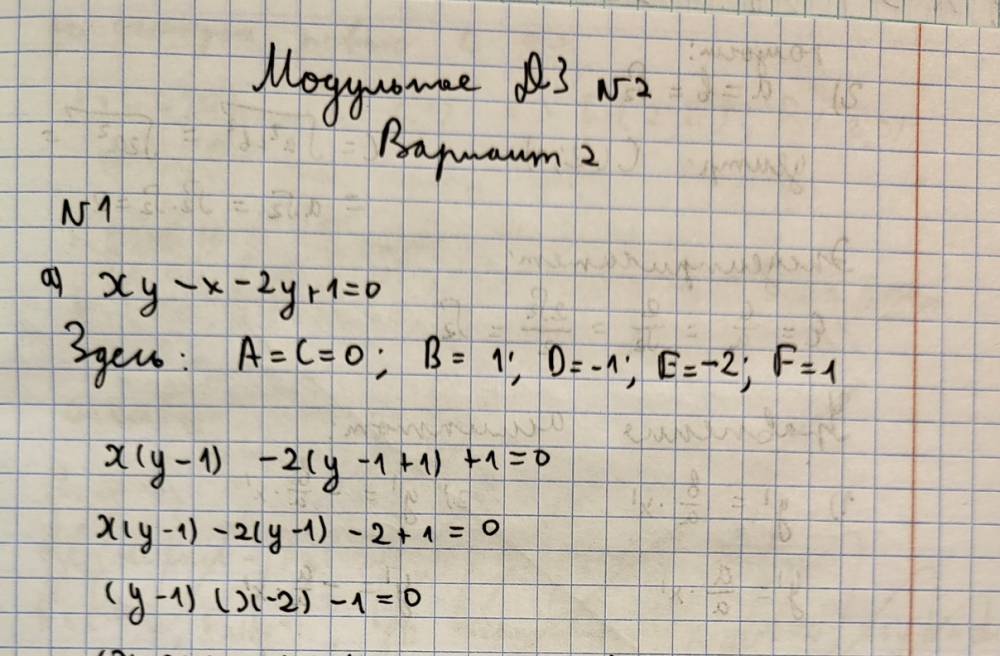 Модульное ДЗ N2
Вариант 2
N1
а) xy - x - 2y + 1 = 0
Здесь: A = C = 0; B = 1; D = -1; E = -2; F = 1
x(y - 1) - 2(y - 1 + 1) + 1 = 0
x(y - 1) - 2(y - 1) - 2 + 1 = 0
(y - 1)(x - 2) - 1 = 0